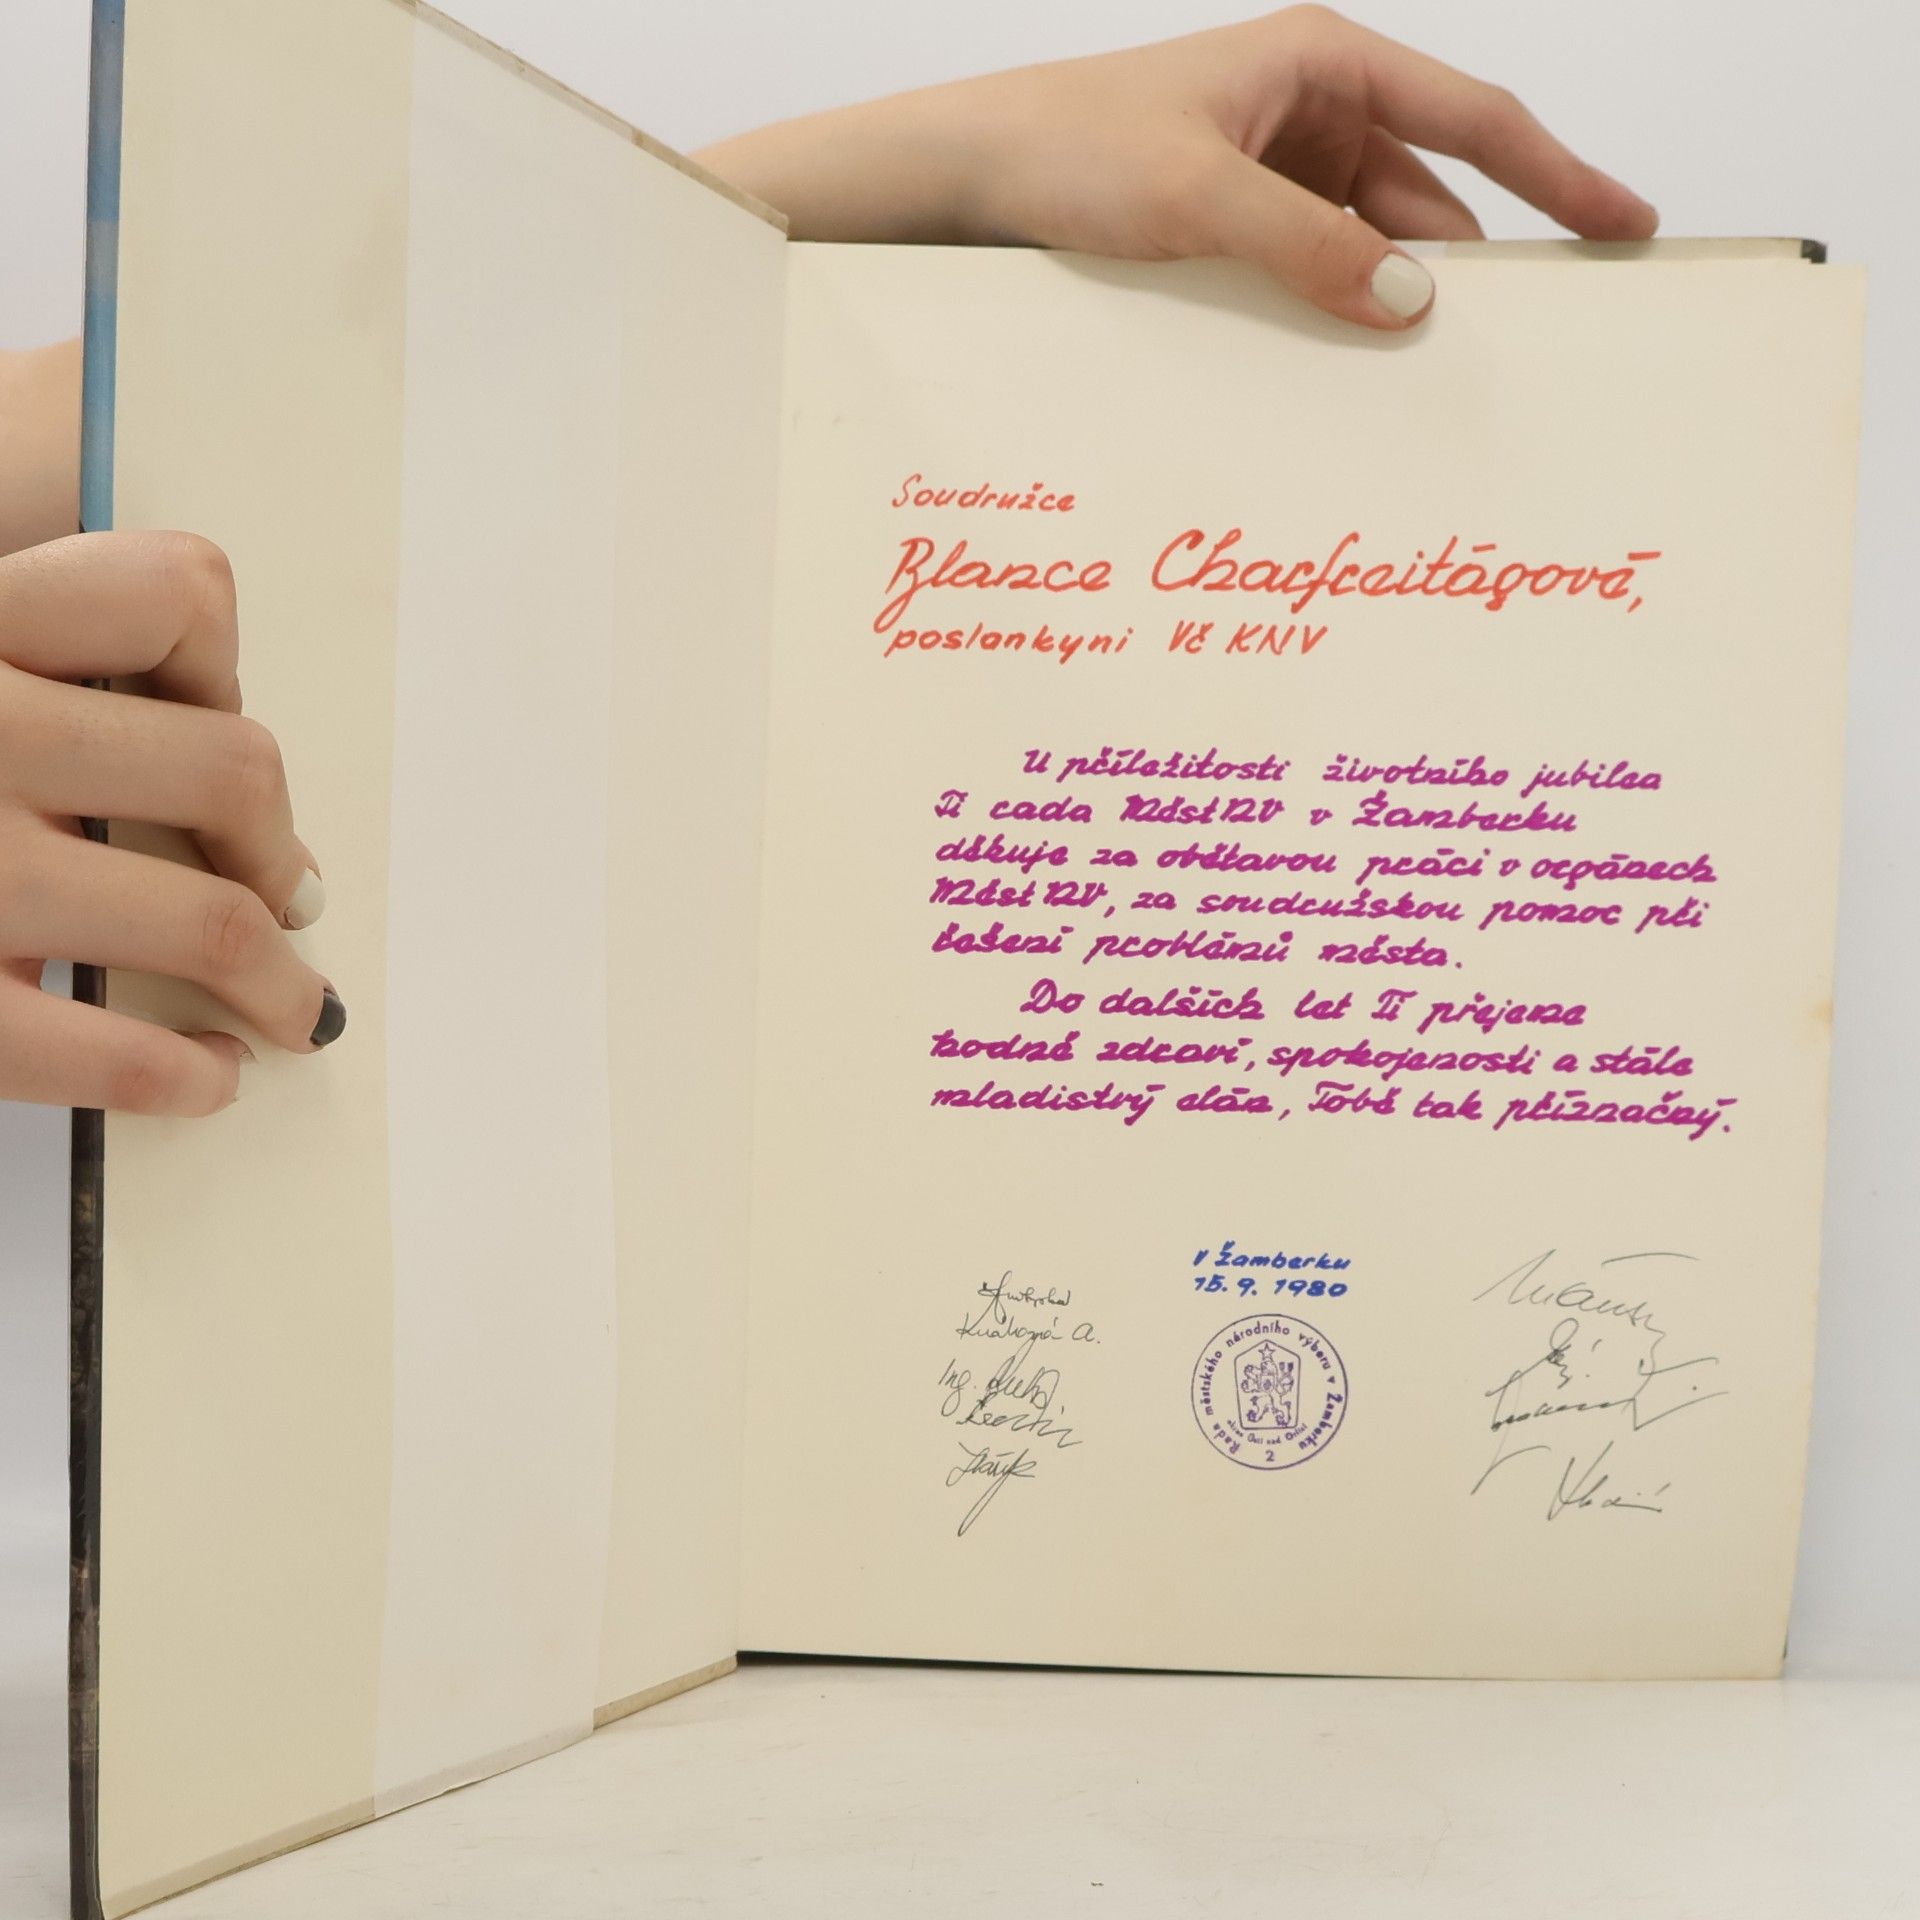 Soudružce
Blance Charfreitágové,
poslankyni Vč KNV
U příležitosti životního jubilea
Ti rada MěstNV v Žamberku
děkuje za obětavou práci v orgánech
MěstNV, za soudružskou pomoc při
řešení problémů města.
Do dalších let Ti přejeme
hodně zdraví, spokojenosti a stále
mladistvý elán, Tobě tak příznačný.
V Žamberku
15. 9. 1980
Rada městského národního výboru v Žamberku
okres Ústí nad Orlicí
2
A.
Ing.